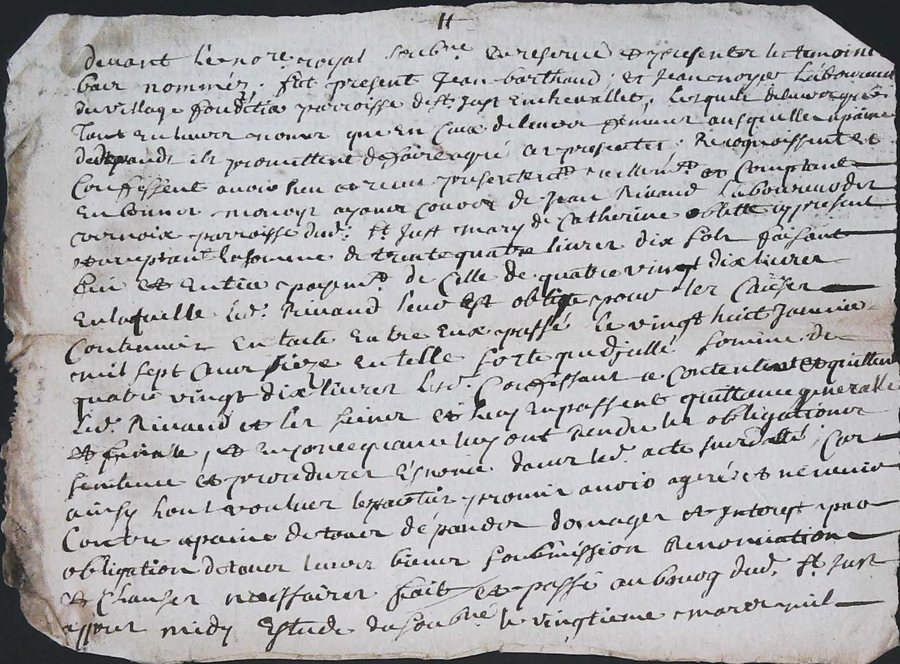 devant le no.re royal soubne reservé et presenter les temoins
bas nommés, fut present Jean barthaud et Jean noyer Laboureurs
du village paroisse de st. Just en chevallet, lesquels de leur gré
Tout en leurs noms que en ceux de leurs a paine
de depands ils promettent de faire agreer ces presentes, Recognoissent et
Confessent avoir heu et receu presentem.t reellem.t et Comptant
en bonne monoye ayant cours de Jean Rinaud Laboureur de
vernoix parroisse dud. St Just mary de Catherine oblette a present
et acceptant la somme de trente quatre livres dix sols faisant
fin et entier payem.t de Celle de quatre vingt dix livres
En laquelle led. Rinaud leur est obligé pour les Causes
Contenues en entre Eux passé le vingt huit Janvier
mil sept cens seze En telle sorte que de lad. somme de
quatre vingt dix livres lesd. Confessant a Contentent et quittent
led. Rinaud et les siens et luy en passent quittance generalle
et finale, et en luy ont Rendu les obligations
sentence et procedures Enoncé dans led. acte surdatté, Car
ainsy l'ont voullu les parties promis avoir agreé et ne venir
Contre a paine de tous dépands domages et Interest par
obligation de tous leurs biens soubmission Renonciation
et Clauses nessaires fait et passé au bourg dud. St. Just
apres midy Estude du soubne le vingtieme mars mil